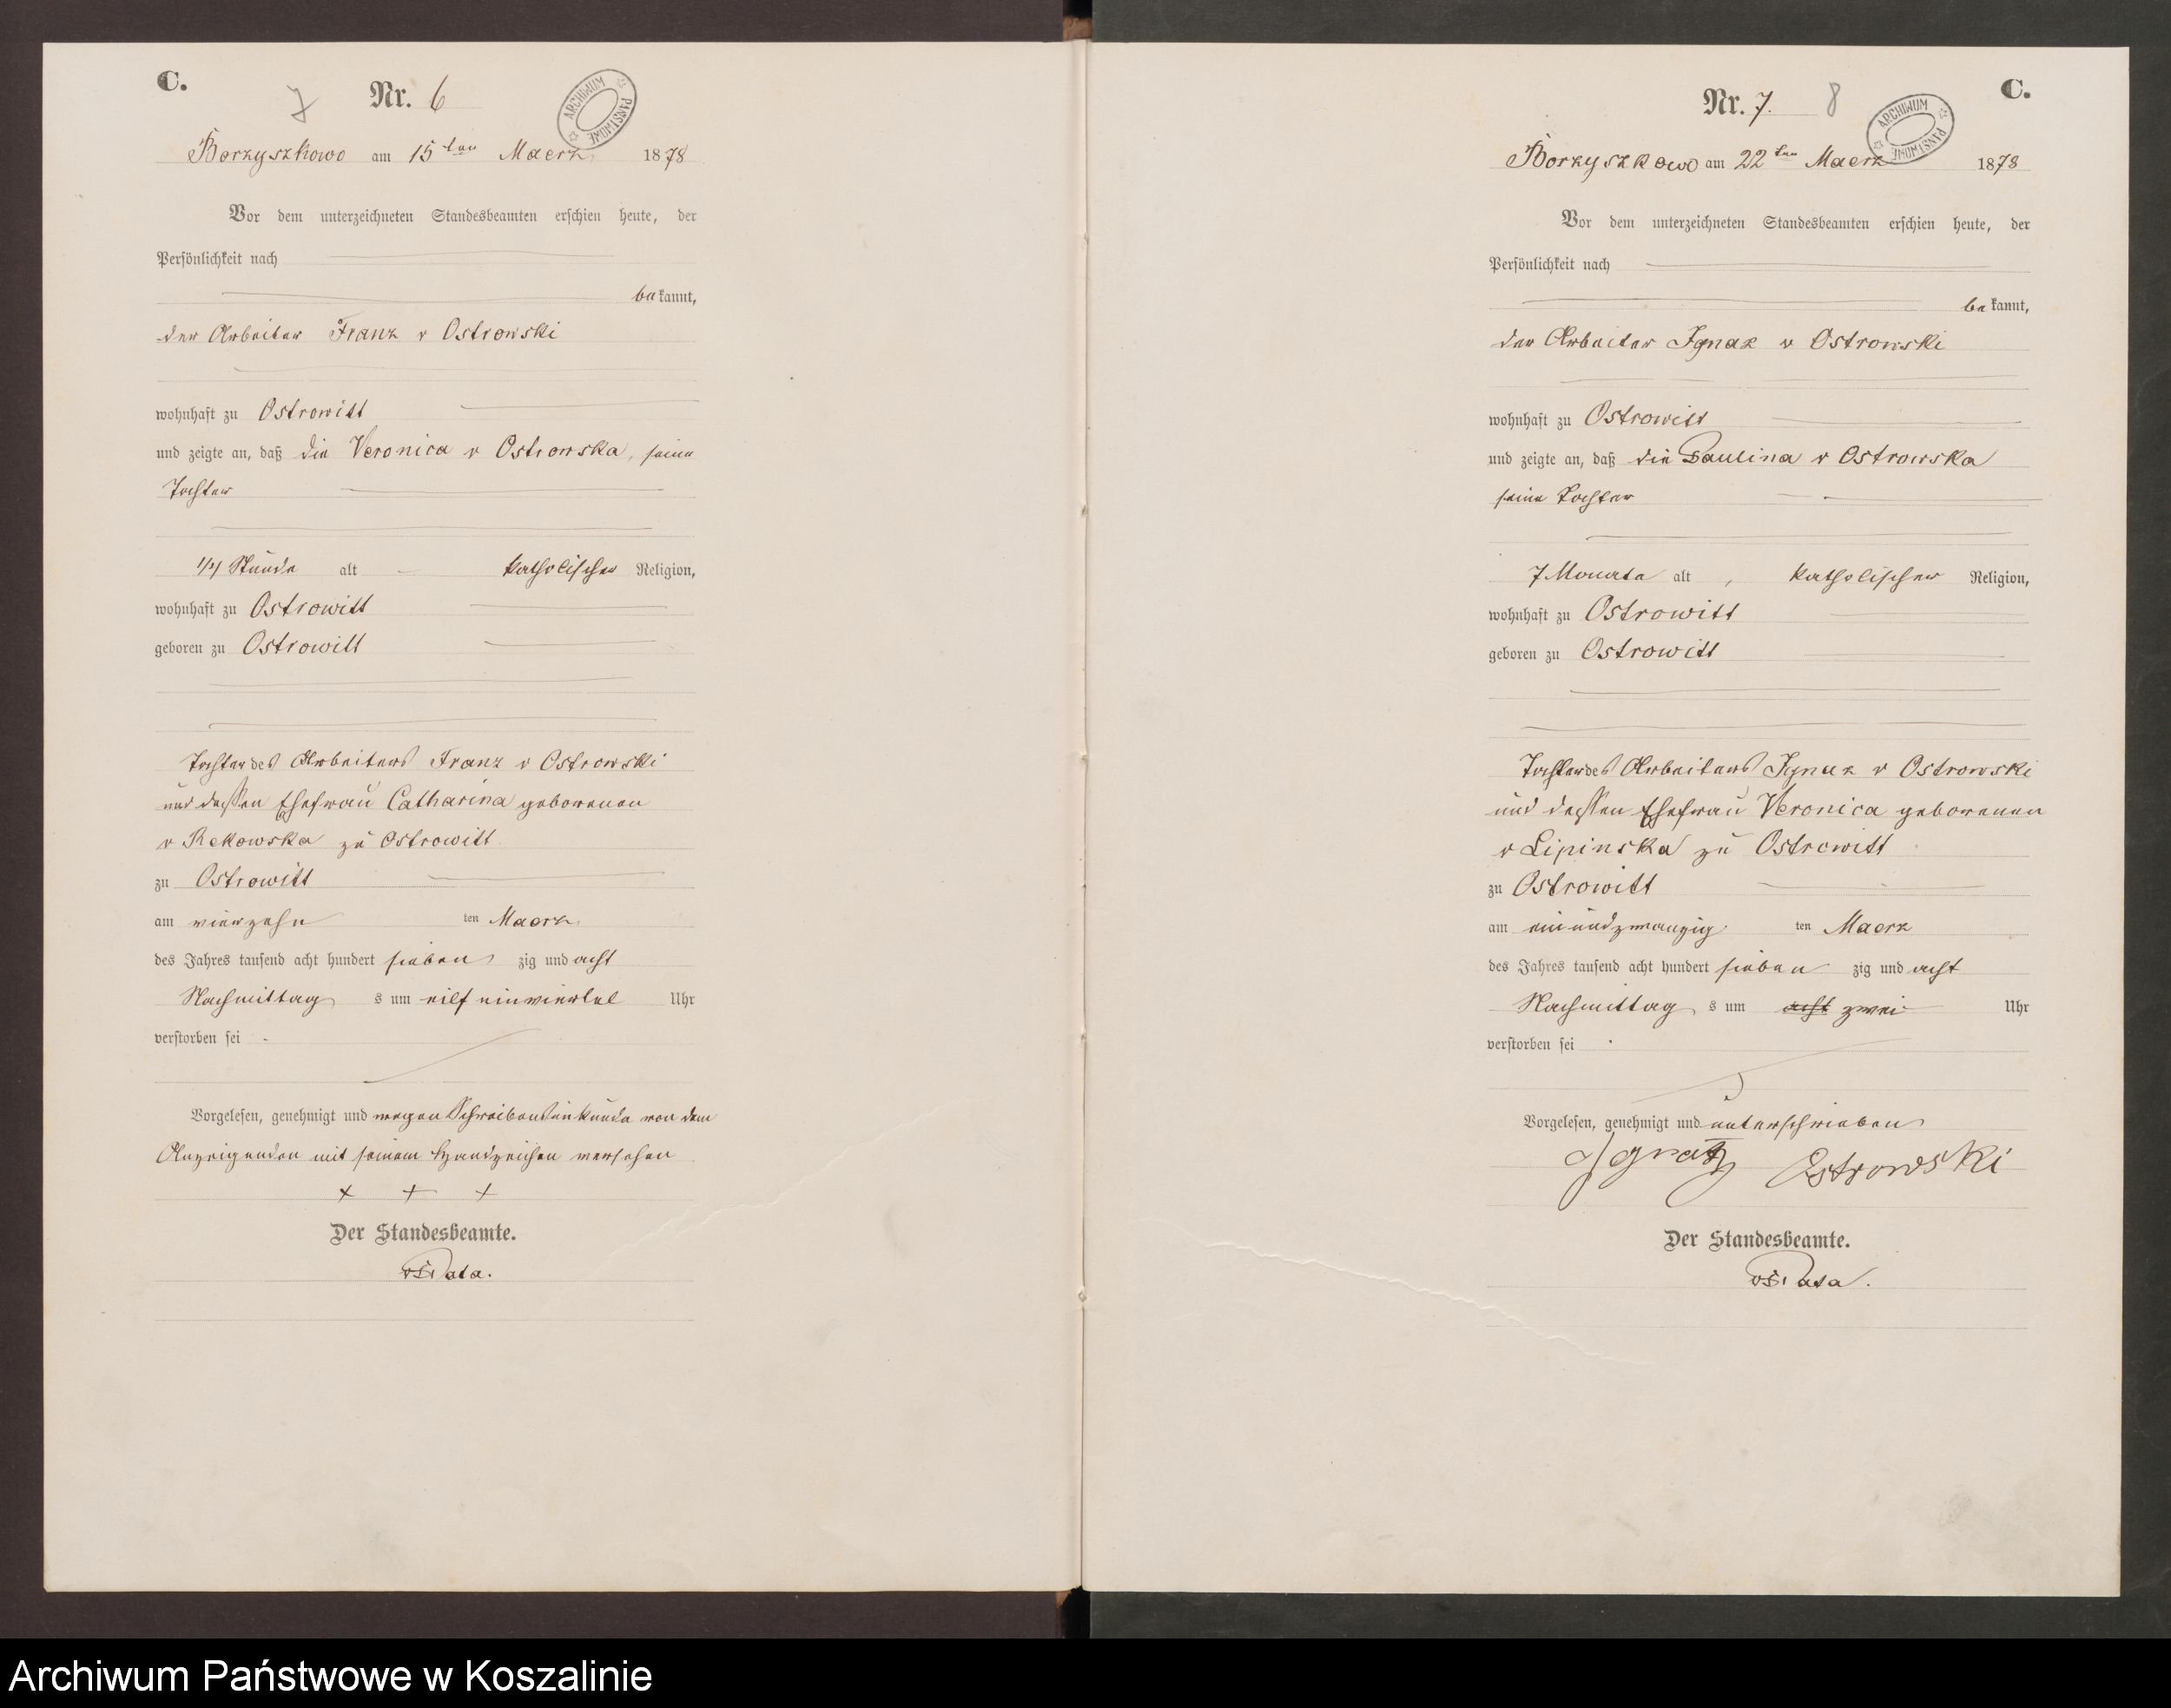 C.
7 Nr. 6
ARCHIWUM PAŃSTWOWE
Borzyszkowo am 15ten Maerz 1878
Vor dem unterzeichneten Standesbeamten erschien heute, der
Persönlichkeit nach
bekannt,
der Arbeiter Franz v Ostrowski
wohnhaft zu Ostrowitt
und zeigte an, daß die Veronica v Ostrowska, seine
Tochter
1/4 Stunde alt katholischer Religion,
wohnhaft zu Ostrowitt
geboren zu Ostrowitt
Tochter des Arbeiters Franz v Ostrowski
und dessen Ehefrau Catharina geborenen
v Rekowska zu Ostrowitt
zu Ostrowitt
am vierzehn ten Maerz
des Jahres tausend acht hundert sieben zig und acht
Nachmittag s um eilf einviertel Uhr
verstorben sei
Vorgelesen, genehmigt und wegen Schreibensunkunde von dem
Anzeigenden mit seinem Handzeichen versehen
+ + +
Der Standesbeamte.
C.
Nr. 7. 8
ARCHIWUM PAŃSTWOWE
Borzyszkowo am 22ten Maerz 1878
Vor dem unterzeichneten Standesbeamten erschien heute, der
Persönlichkeit nach
bekannt,
der Arbeiter Ignaz v Ostrowski
wohnhaft zu Ostrowitt
und zeigte an, daß die Paulina v Ostrowska
seine Tochter
7 Monate alt, katholischer Religion,
wohnhaft zu Ostrowitt
geboren zu Ostrowitt
Tochter des Arbeiters Ignaz v Ostrowski
und dessen Ehefrau Veronica geborenen
v Lipinska zu Ostrowitt
zu Ostrowitt
am einundzwanzig ten Maerz
des Jahres tausend acht hundert sieben zig und acht
Nachmittag s um acht zwei Uhr
verstorben sei
Vorgelesen, genehmigt und unterschrieben
Ignatz Ostrowski
Der Standesbeamte.
Archiwum Państwowe w Koszalinie